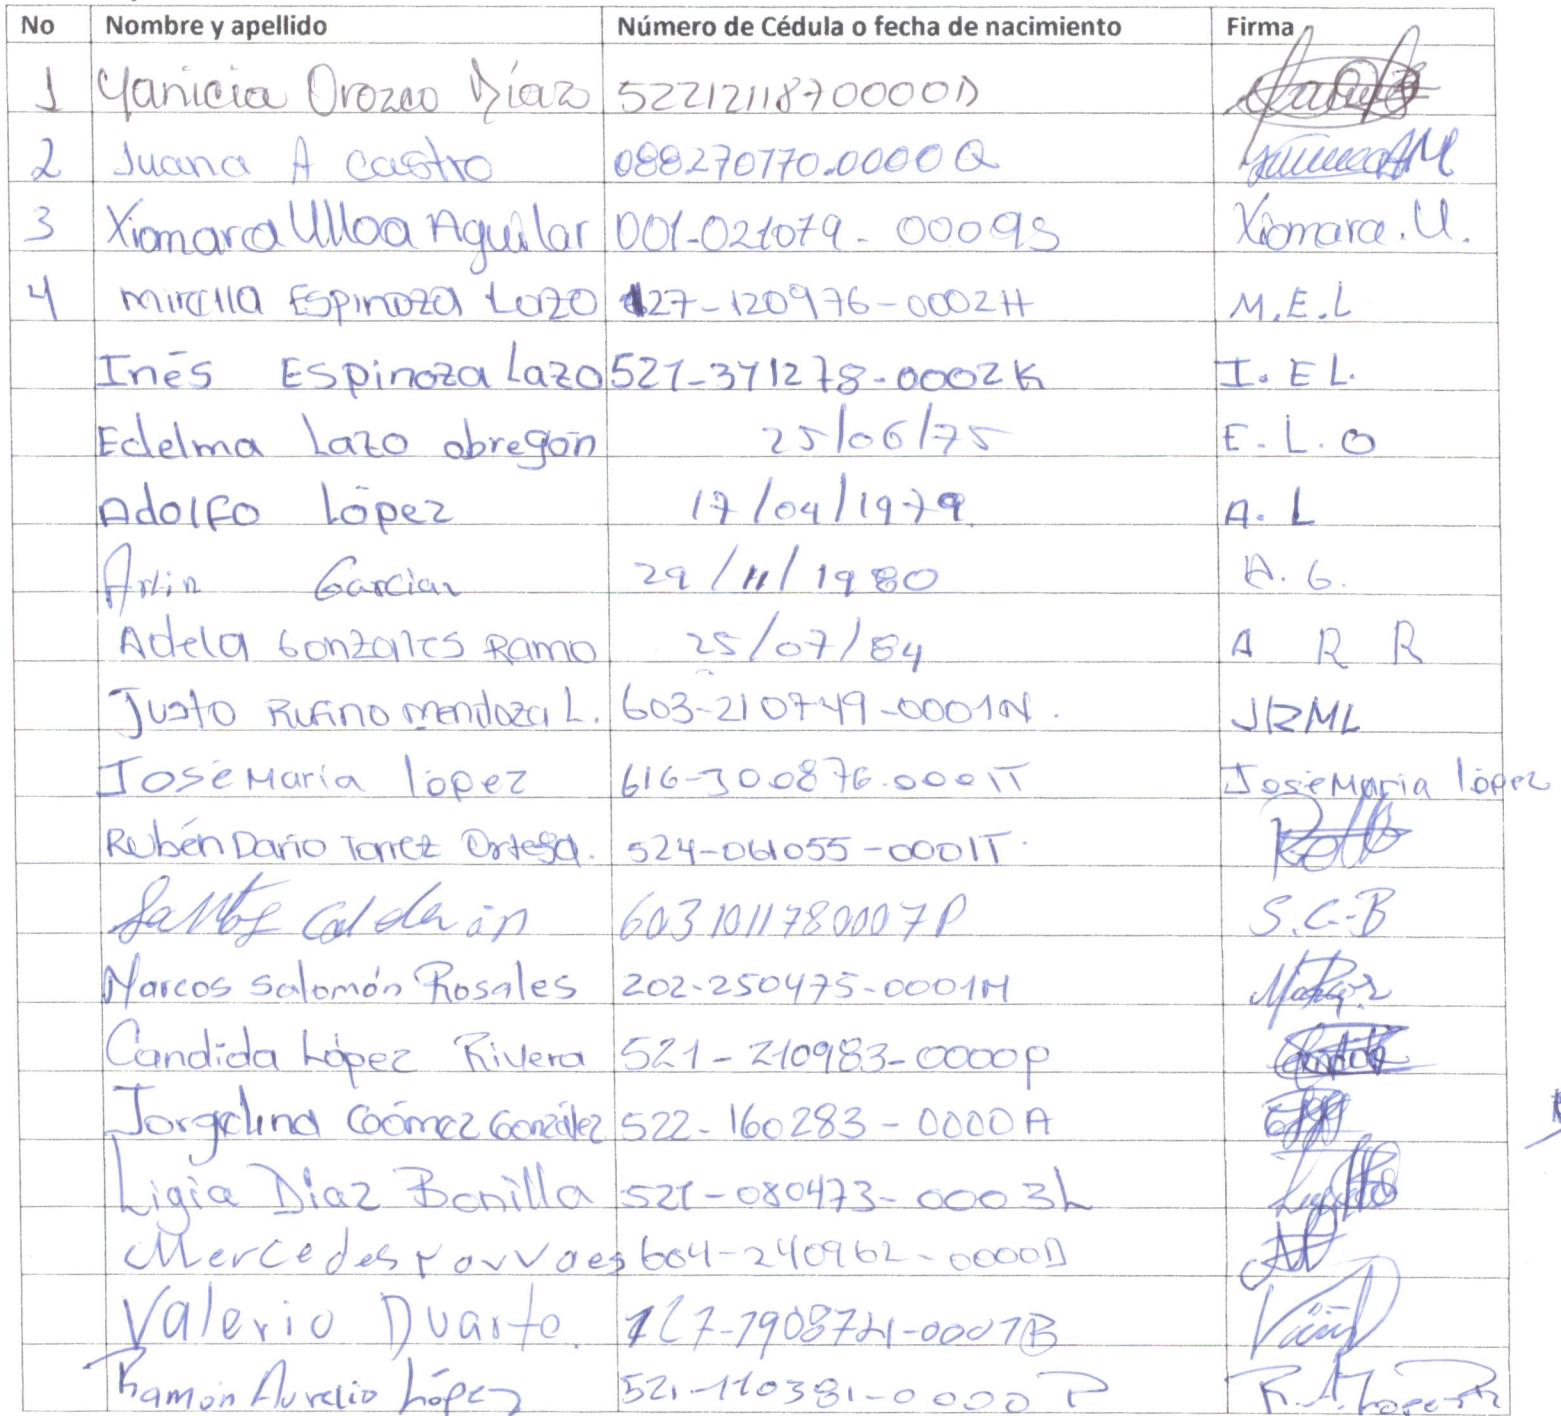 No Nombre y apellido Número de Cédula o fecha de nacimiento Firma
1 Yanicia Orozco Díaz 5221211870000D
2 Juana A Castro 088270770.0000Q
3 Xiomara Ulloa Aguilar 001-021079-00009S Xiomara.U.
4 Mirella Espinoza Lazo 127-120976-0002H M.E.L
Inés Espinoza Lazo 521-311278-0002K I. EL.
Edelma Lazo obregón 25/06/75 E. L. O
Adolfo López 17/04/1979 A. L
Arlin Garcia 29/11/1980 A. G.
Adela Gonzales Ramo 25/07/84 A R R
Justo Rufino Mendoza L. 603-210749-0001N. JRML
José María lópez 616-300876.0001T José María lópez
Rubén Dario Torrez Ortega. 524-061055-0001T.
Santos Calderón 6031011780007P S.C-B
Marcos Salomón Rosales 202-250475-0001H
Candida López Rivera 521-210983-0000P
Jorgelina Goómez González 522-160283-0000A
Ligia Díaz Bonilla 521-080473-0003L
Mercedes 604-240962-0000D
Valerio Duarte. 127-190872-0001B
Ramón Aurelio López 521-110381-0000P R.A.Lopez R